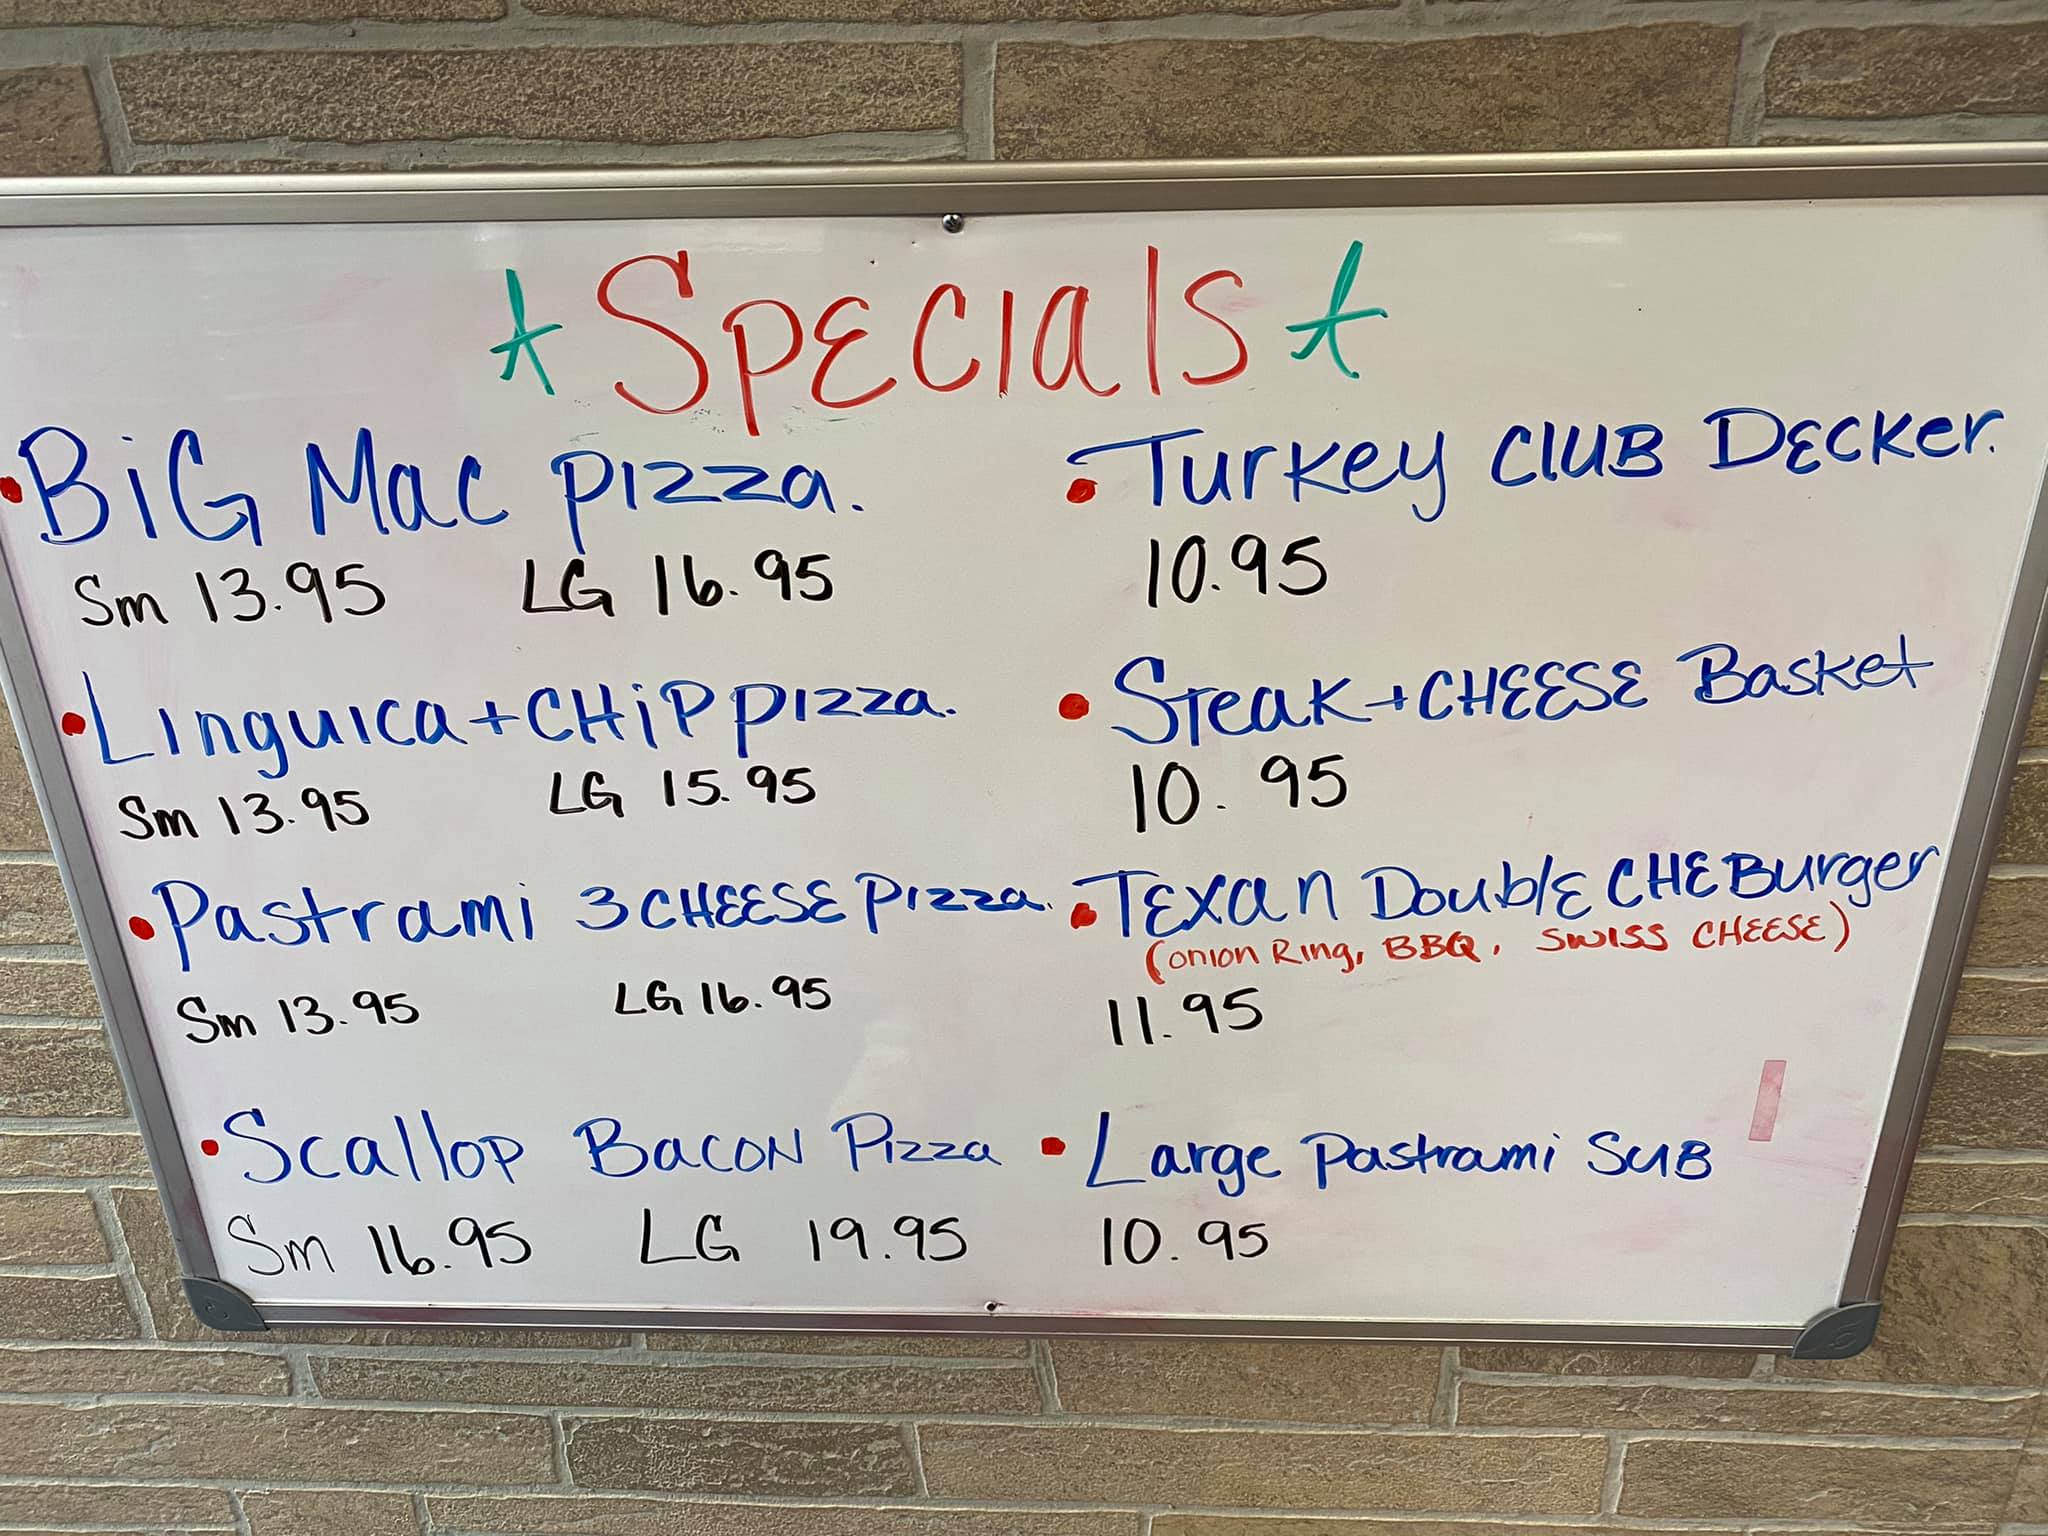 Specials
BiG Mac pizza.
Sm 13.95 LG 16.95
Linguica + CHiP pizza.
Sm 13.95 LG 15.95
Pastrami 3 CHEESE Pizza.
Sm 13.95 LG 16.95
Scallop Bacon Pizza
Sm 16.95 LG 19.95
Turkey Club Decker.
10.95
Steak + CHEESE Basket
10.95
Texan Double CHEBurger
(onion Ring, BBQ, SWISS CHEESE)
11.95
Large Pastrami SUB
10.95